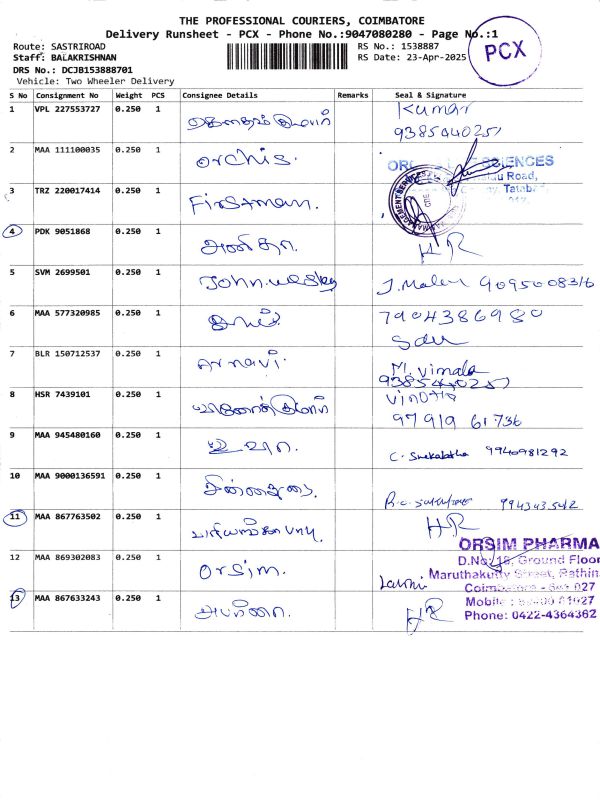 THE PROFESSIONAL COURIERS, COIMBATORE
Delivery Runsheet - PCX - Phone No.:9047080280 - Page No.:1
Route: SASTRIROAD
RS No.: 1538887
Staff: BALAKRISHNAN
RS Date: 23-Apr-2025
PCX
DRS No.: DCJB153888701
Vehicle: Two Wheeler Delivery
S No Consignment No Weight PCS Consignee Details Remarks Seal & Signature
1 VPL 227553727 0.250 1 Kumar
9385440257
2 MAA 111100035 0.250 1 orchis.
3 TRZ 220017414 0.250 1 Firstman.
4 PDK 9051868 0.250 1 HR
5 SVM 2699501 0.250 1 John.wesley J. 9095008316
6 MAA 577320985 0.250 1 7904386980
7 BLR 150712537 0.250 1 Arnavi. M. Vimala
9385440257
8 HSR 7439101 0.250 1
97919 61736
9 MAA 945480160 0.250 1 உஷா. 9940981292
10 MAA 9000136591 0.250 1 சின்னதுரை.
11 MAA 867763502 0.250 1 HR
12 MAA 869302083 0.250 1 Orsim.
ORSIM PHARMA
D.No. 18, Ground Floor
Maruthakutty Street, Rathin
Phone: 0422-4364362
13 MAA 867633243 0.250 1 HR